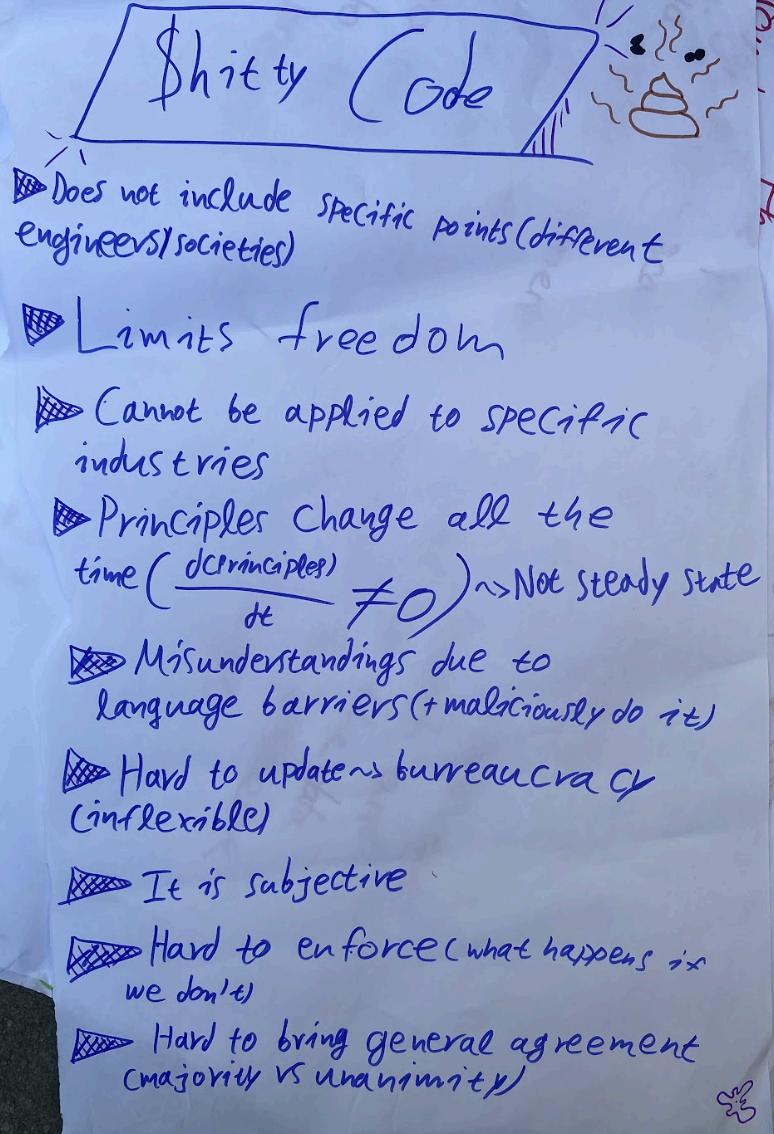 $hitty Code
Does not include specific points (different
engineers/societies)
Limits freedom
Cannot be applied to specific
industries
Principles change all the
time ( d(Principles)/dt ≠0 ) ~> Not steady state
Misunderstandings due to
language barriers (+maliciously do it)
Hard to update ~> burreaucracy
(inflexible)
It is subjective
Hard to enforce (what happens if
we don't)
Hard to bring general agreement
(majority vs unanimity)